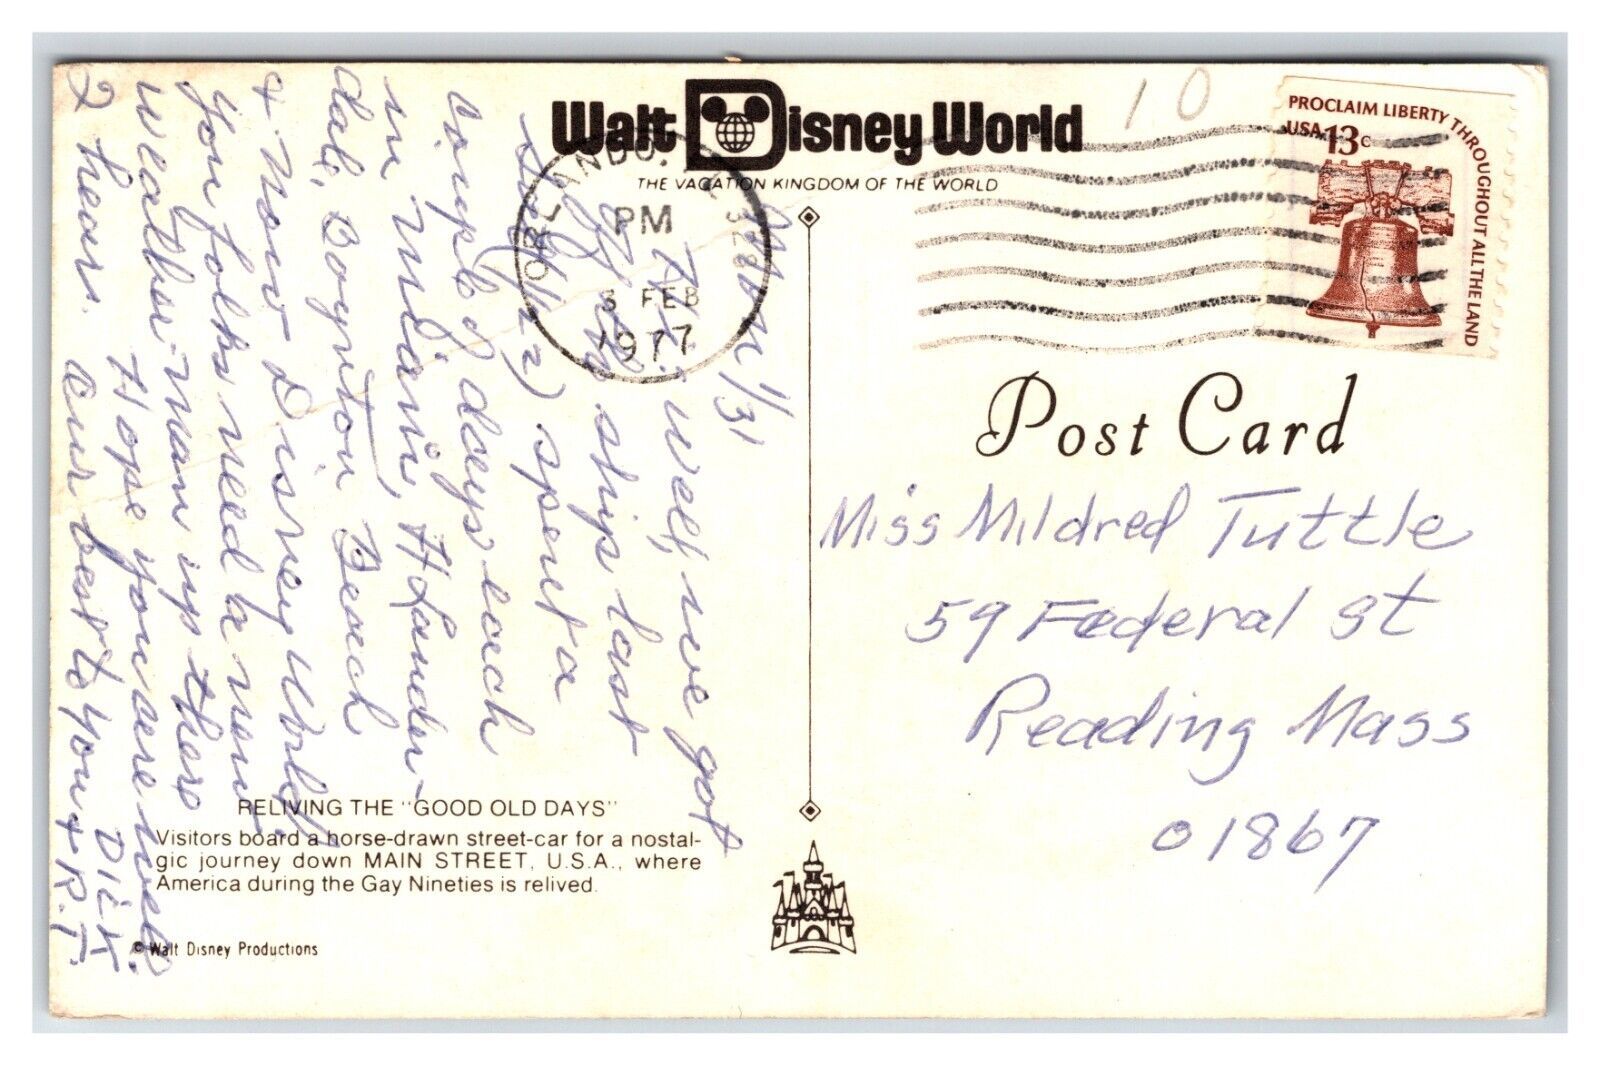 Walt Disney World
THE VACATION KINGDOM OF THE WORLD
10
PROCLAIM LIBERTY THROUGHOUT ALL THE LAND
USA 13c
ORLANDO, FL 328
PM
3 FEB
1977
Post Card
Miss Mildred Tuttle
59 Federal St
Reading Mass
01867
Mon 1/31
Hi: Well, we got
off the ship last
spent a
couple of days each
in Miami, H Lauder-
dale, Boynton Beach
& Now Disney World.
You folks need a new
weather man up there
I hear. Hope you are well.
Our best to you & R.T.
DICK
RELIVING THE "GOOD OLD DAYS"
Visitors board a horse-drawn street-car for a nostal-
gic journey down MAIN STREET, U.S.A., where
America during the Gay Nineties is relived.
© Walt Disney Productions